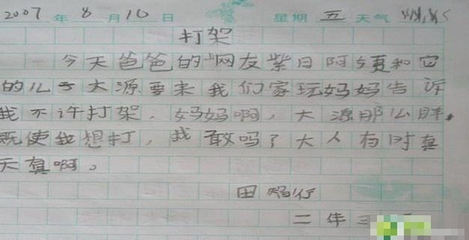 2007年8月10日 星期五天气
打架
今天爸爸的网友紫日阿姨和它
的儿子大源要来我们家玩妈妈告诉
我不许打架。妈妈啊，大源那么胖，
既使我想打，我敢吗？大人有时真
天真啊。
田
二年三